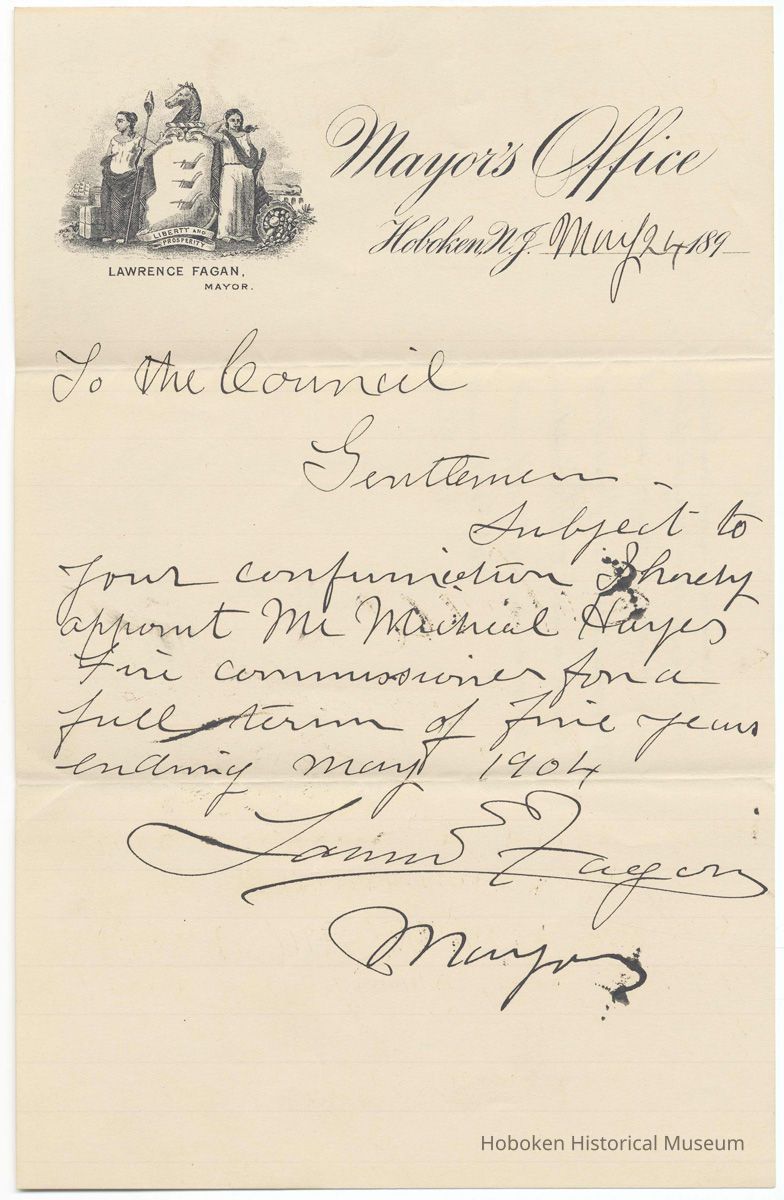 Mayor's Office
Hoboken, N.J. May 24 189
LIBERTY AND
PROSPERITY
LAWRENCE FAGAN,
MAYOR.
To the Council
Gentlemen -
Subject to
your confirmation I hereby
appoint Mr Micheal Hayes
Fire commissioner for a
full term of five years
ending May 1904
Fagan
Mayor
Hoboken Historical Museum